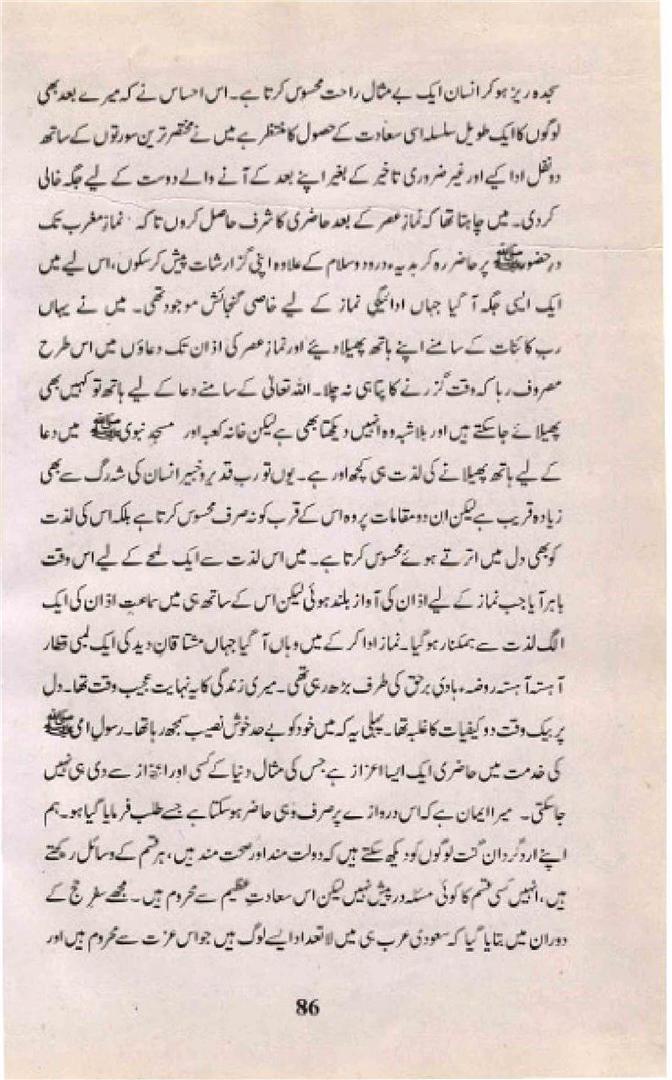 سجدہ ریز ہو کر انسان ایک بے مثال راحت محسوس کرتا ہے۔ اس احساس نے کہ میرے بعد بھی
لوگوں کا ایک طویل سلسلہ اسی سعادت کے حصول کا منتظر ہے میں نے مختصر ترین سورتوں کے ساتھ
دو نفل ادا کیے اور غیر ضروری تاخیر کے بغیر اپنے بعد کے آنے والے دوست کے لیے جگہ خالی
کر دی۔ میں چاہتا تھا کہ نمازِ عصر کے بعد حاضری کا شرف حاصل کروں تا کہ نمازِ مغرب تک
درِ حضور ﷺ پر حاضر رہ کر ہدیہء درود و سلام کے علاوہ اپنی گزارشات پیش کر سکوں، اس لیے میں
ایک ایسی جگہ آ گیا جہاں ادائیگی نماز کے لیے خاصی گنجائش موجود تھی۔ میں نے یہاں
رب کائنات کے سامنے اپنے ہاتھ پھیلا دیئے اور نمازِ عصر کی اذان تک دعاؤں میں اس طرح
مصروف رہا کہ وقت گزرنے کا پتا ہی نہ چلا۔ اللہ تعالیٰ کے سامنے دعا کے لیے ہاتھ تو کہیں بھی
پھیلائے جا سکتے ہیں اور بلاشبہ وہ انہیں دیکھتا بھی ہے لیکن خانہ کعبہ اور مسجدِ نبوی ﷺ میں دعا
کے لیے ہاتھ پھیلانے کی لذت ہی کچھ اور ہے۔ یوں تو ربِ قدیر و خبیر انسان کی شہ رگ سے بھی
زیادہ قریب ہے لیکن ان دو مقامات پر وہ اس کے قرب کو نہ صرف محسوس کرتا ہے بلکہ اس کی لذت
کو بھی دل میں اترتے ہوئے محسوس کرتا ہے۔ میں اس لذت سے ایک لمحے کے لیے اس وقت
باہر آیا جب نماز کے لیے اذان کی آواز بلند ہوئی لیکن اس کے ساتھ ہی میں سماعتِ اذان کی ایک
الگ لذت سے ہمکنار ہو گیا۔ نماز ادا کر کے میں وہاں آ گیا جہاں مشتاقانِ دید کی ایک لمبی قطار
آہستہ آہستہ روضہء ہادی برحق کی طرف بڑھ رہی تھی۔ میری زندگی کا یہ نہایت عجیب وقت تھا۔ دل
پر بیک وقت دو کیفیات کا غلبہ تھا۔ پہلی یہ کہ میں خود کو بے حد خوش نصیب سمجھ رہا تھا۔ رسولِ امی ﷺ
کی خدمت میں حاضری ایک ایسا اعزاز ہے جس کی مثال دنیا کے کسی اور اعزاز سے دی ہی نہیں
جا سکتی۔ میرا ایمان ہے کہ اس دروازے پر صرف وہی حاضر ہو سکتا ہے جسے طلب فرمایا گیا ہو۔ ہم
اپنے ارد گرد ان گنت لوگوں کو دیکھ سکتے ہیں کہ دولت مند اور صحت مند ہیں، ہر قسم کے وسائل رکھتے
ہیں، انہیں کسی قسم کا کوئی مسئلہ درپیش نہیں لیکن اس سعادتِ عظیم سے محروم ہیں۔ مجھے سفرِ حج کے
دوران میں بتایا گیا کہ سعودی عرب ہی میں لاتعداد ایسے لوگ ہیں جو اس عزت سے محروم ہیں اور
86